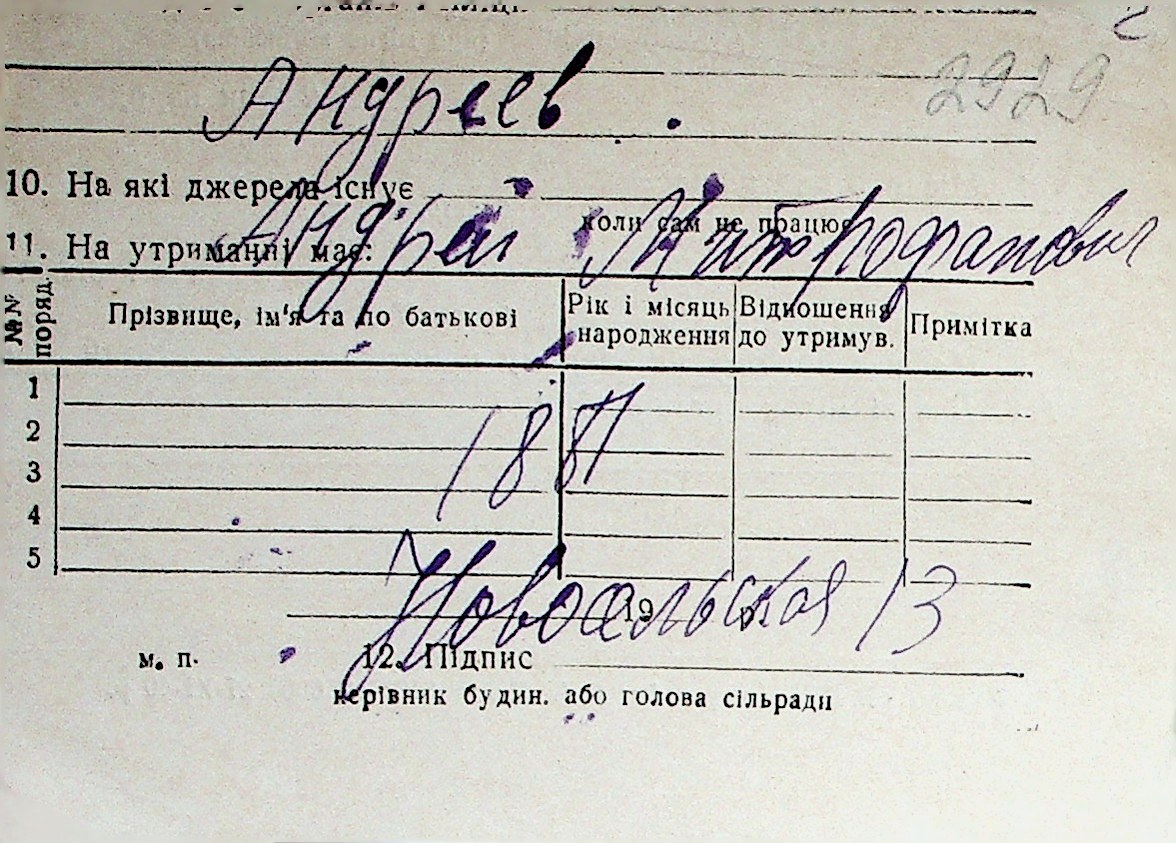 2929
Андреев
10. На які джерела існує
коли сам не працює
Андрей Митрофанович
11. На утриманні має:
№№ поряд. Прізвище, ім'я та по батькові Рік і місяць народження Відношення до утримув. Примітка
1
2
3
4
5
Новосельская 13
19 р.
м. п. 12. Підпис
керівник будин. або голова сільради